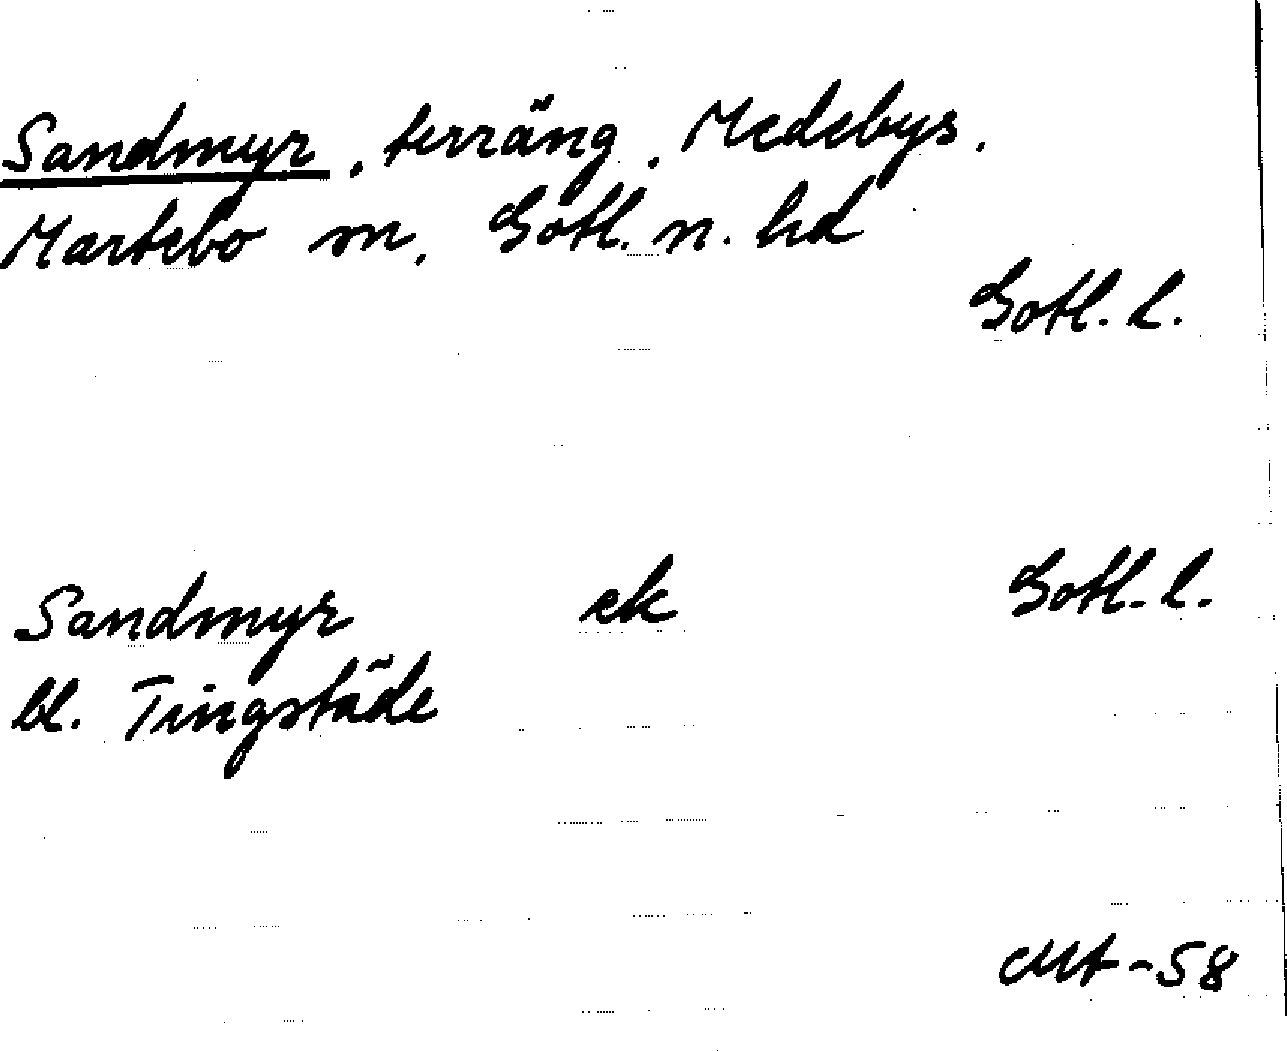 Sandmyr, terräng, Medebys,
Martebo sn, Gotl. n. hd
Gotl. l.
Sandmyr ek Gotl. l.
bl. Tingstäde